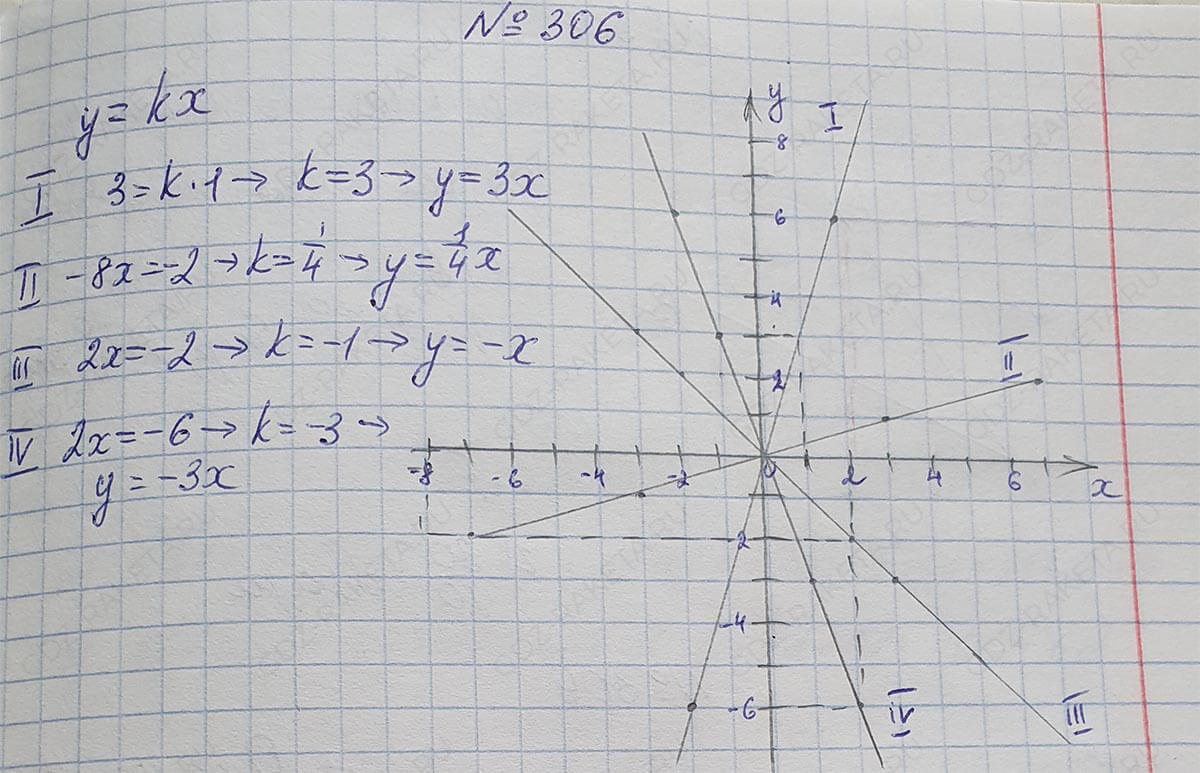 № 306
y = kx
I 3 = k·1 → k = 3 → y = 3x
II -8x = -2 → k = 1/4 → y = 1/4 x
III 2x = -2 → k = -1 → y = -x
IV 2x = -6 → k = -3 →
y = -3x
y
I
8
6
4
2
II
-8 -6 -4 -2 0 2 4 6 x
2
-4
-6
IV
III
GDZ-RAKETA.RU